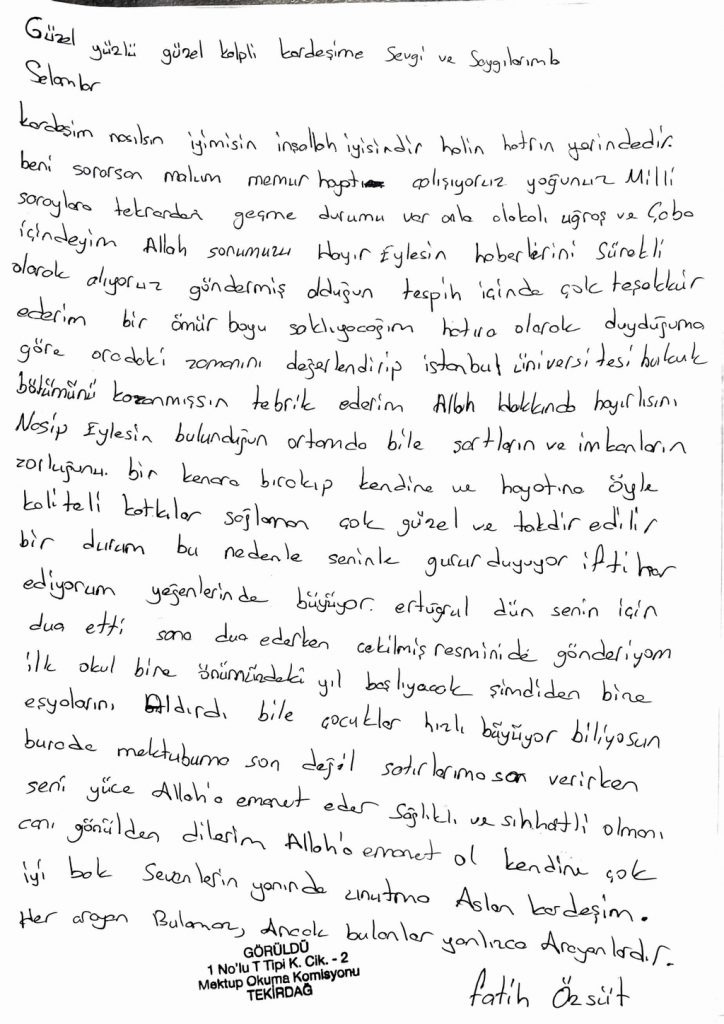 Güzel yüzlü güzel kalpli kardeşime Sevgi ve Saygılarımla
Selamlar
kardeşim nasılsın iyimisin inşallah iyisindir halin hatrın yerindedir.
beni sorarsan malum memur hayatı çalışıyoruz yoğunuz Milli
saraylara tekrardan geçme durumu var onla alakalı uğraş ve Çaba
içindeyim Allah sonumuzu Hayır Eylesin haberlerini Sürekli
olarak alıyoruz göndermiş olduğun tespih içinde çok teşekkür
ederim bir ömür boyu saklıyacağım hatıra olarak duyduğuma
göre oradaki zamanını değerlendirip istanbul üniversitesi hukuk
bölümünü kazanmışsın tebrik ederim Allah Hakkında hayırlısını
Nasip Eylesin bulunduğun ortamda bile şartların ve imkanların
zorluğunu bir kenara bırakıp kendine ve hayatına öyle
kaliteli katkılar sağlaman çok güzel ve takdir edilir
bir durum bu nedenle seninle gurur duyuyor iftihar
ediyorum yeğenlerinde büyüyor. ertuğrul dün senin için
dua etti sana dua ederken çekilmiş resminide gönderiyom
ilk okul bire önümündeki yıl başlıyacak şimdiden bire
eşyaların, Aldırdı bile çocuklar hızlı büyüyor biliyosun
burada mektubuma son değil satırlarıma son verirken
seni yüce Allah'a emanet eder Sağlıklı ve sıhhatli olmanı
canı gönülden dilerim Allah'a emanet ol kendine çok
iyi bak Sevenlerin yanında unutma Aslan kardeşim.
Her arayan Bulamaz, Ancak bulanlar yanlızca Arayanlardır.
GÖRÜLDÜ
1 No'lu T Tipi K. Cik. - 2
Mektup Okuma Komisyonu
TEKİRDAĞ
fatih Özsüt